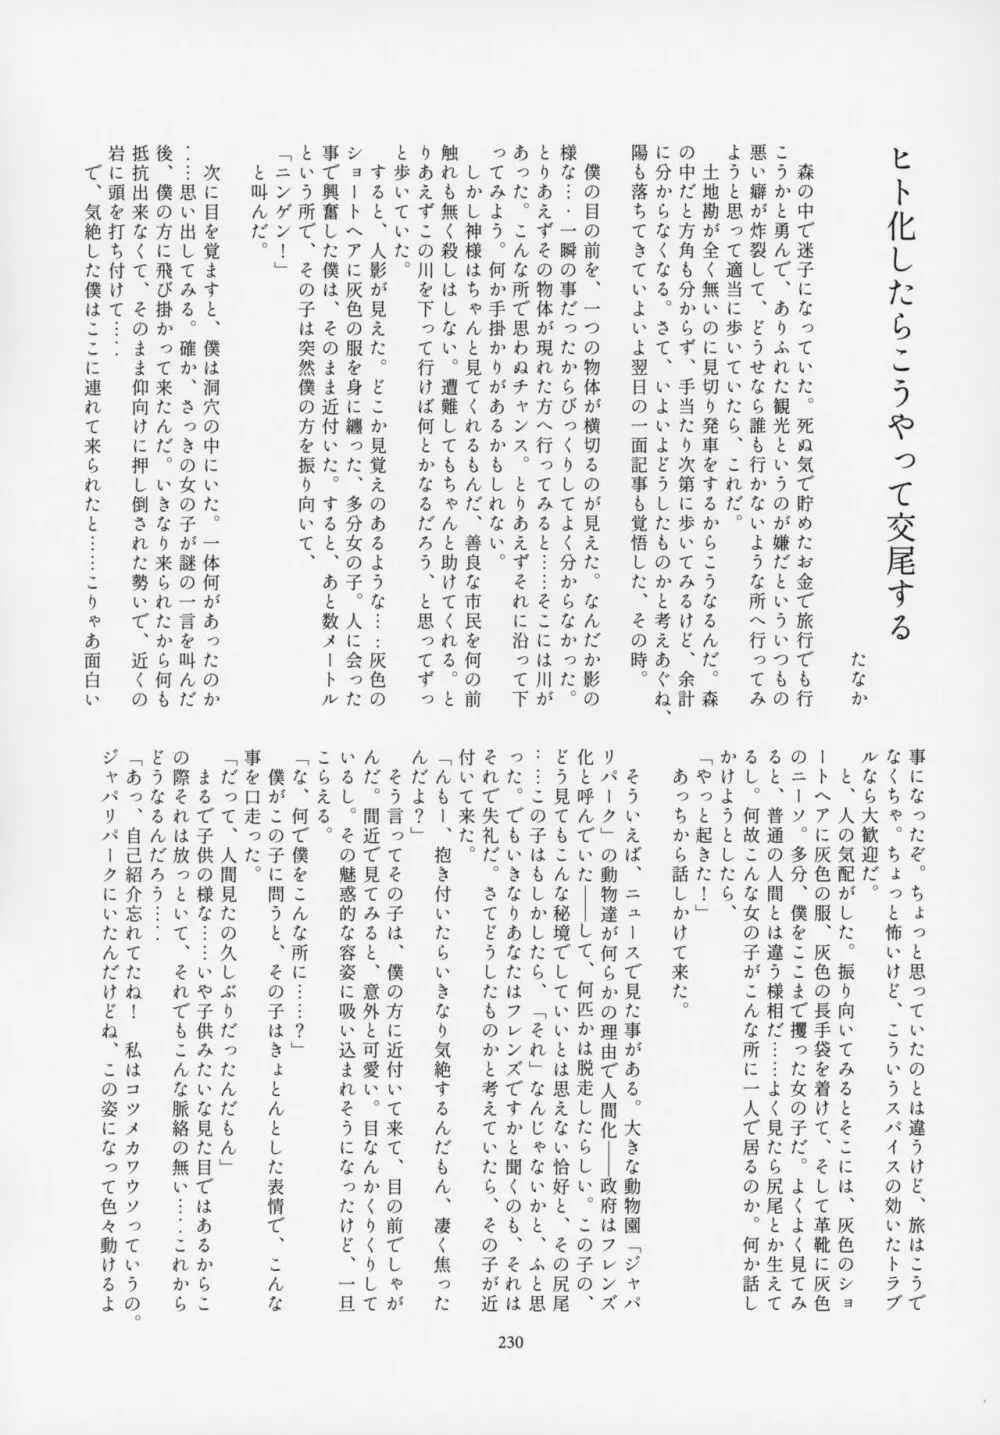 ヒト化したらこうやって交尾する
たなか
森の中で迷子になっていた。死ぬ気で貯めたお金で旅行でも行
こうかと勇んで、ありふれた観光というのが嫌だといういつもの
悪い癖が炸裂して、どうせなら誰も行かないような所へ行ってみ
ようと思って適当に歩いていたら、これだ。
土地勘が全く無いのに見切り発車をするからこうなるんだ。森
の中だと方角も分からず、手当たり次第に歩いてみるけど、余計
に分からなくなる。さて、いよいよどうしたものかと考えあぐね、
陽も落ちてきていよいよ翌日の一面記事も覚悟した、その時。
僕の目の前を、一つの物体が横切るのが見えた。なんだか影の
様な…・一瞬の事だったからびっくりしてよく分からなかった。
とりあえずその物体が現れた方へ行ってみると……そこには川が
あった。こんな所で思わぬチャンス。とりあえずそれに沿って下
ってみよう。何か手掛かりがあるかもしれない。
しかし神様はちゃんと見てくれるもんだ、善良な市民を何の前
触れも無く殺しはしない。遭難してもちゃんと助けてくれる。と
りあえずこの川を下って行けば何とかなるだろう、と思ってずっ
と歩いていた。
すると、人影が見えた。どこか見覚えのあるような…‥灰色の
ショートヘアに灰色の服を身に纏った、多分女の子。人に会った
事で興奮した僕は、そのまま近付いた。すると、あと数メートル
という所で、その子は突然僕の方を振り向いて、
「ニンゲン！」
と叫んだ。
次に目を覚ますと、僕は洞穴の中にいた。一体何があったのか
‥…思い出してみる。確か、さっきの女の子が謎の一言を叫んだ
後、僕の方に飛び掛かって来たんだ。いきなり来られたから何も
抵抗出来なくて、そのまま仰向けに押し倒された勢いで、近くの
岩に頭を打ち付けて…‥
で、気絶した僕はここに連れて来られたと……こりゃあ面白い
事になったぞ。ちょっと思っていたのとは違うけど、旅はこうで
なくちゃ。ちょっと怖いけど、こういうスパイスの効いたトラブ
ルなら大歓迎だ。
と、人の気配がした。振り向いてみるとそこには、灰色のショ
ートヘアに灰色の服、灰色の長手袋を着けて、そして革靴に灰色
のニーソ。多分、僕をここまで攫った女の子だ。よくよく見てみ
ると、普通の人間とは違う様相だ……よく見たら尻尾とか生えて
るし。何故こんな女の子がこんな所に一人で居るのか。何か話し
かけようとしたら、
「やっと起きた！」
あっちから話しかけて来た。
そういえば、ニュースで見た事がある。大きな動物園「ジャパ
リパーク」の動物達が何らかの理由で人間化――政府はフレンズ
化と呼んでいた――して、何匹かは脱走したらしい。この子の、
どう見てもこんな秘境でしていいとは思えない恰好と、その尻尾
……この子はもしかしたら、「それ」なんじゃないかと、ふと思
った。でもいきなりあなたはフレンズですかと聞くのも、それは
それで失礼だ。さてどうしたものかと考えていたら、その子が近
付いて来た。
「んもー、抱き付いたらいきなり気絶するんだもん、凄く焦った
んだよ？」
そう言ってその子は、僕の方に近付いて来て、目の前でしゃが
んだ。間近で見てみると、意外と可愛い。目なんかくりくりして
いるし。その魅惑的な容姿に吸い込まれそうになったけど、一旦
こらえる。
「な、何で僕をこんな所に……？」
僕がこの子に問うと、その子はきょとんとした表情で、こんな
事を口走った。
「だって、人間見たの久しぶりだったんだもん」
まるで子供の様な……いや子供みたいな見た目ではあるからこ
の際それは放っといて、それでもこんな脈絡の無い…‥これから
どうなるんだろう…‥
「あっ、自己紹介忘れてたね！　私はコツメカワウソっていうの。
ジャパリパークにいたんだけどね、この姿になって色々動けるよ
230